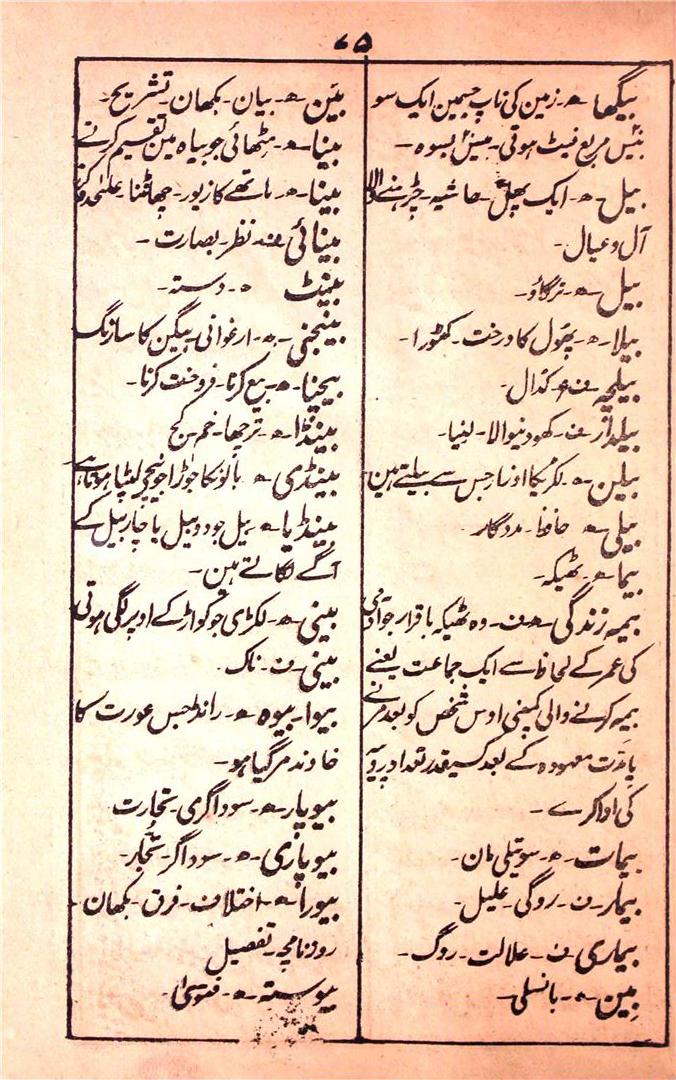 ۷۵
بیگھا - ھ - زمین کی ناپ جسمین ایک سو
بیس مربع فیٹ ہوتی - بیس بسوہ -
بیل - ھ - ایک پھل - حاشیہ - چڑہنے والا
آل و عیال -
بیل - ھ - نرگاؤ -
بیلا - ھ - پھول کا درخت - کٹورا -
بیلچہ - ف - کدال -
بیلدار - ف - کھودنیوالا -
بیلن - ھ - لکڑیکا اوزار جس سے بیلتے ہین -
بیلی - ھ - حافظ - مددگار
بیما - ھ - ٹھیکہ -
بیمہ زندگی - ھ ف - وہ ٹھیکہ باقرار جو آدمی
کی عمر کے لحاظ سے ایک جماعت یعنے
بیمہ کرنے والی کمپنی اوس شخص کو بعد مرنے
یا مدت معہودہ کے بعد کسیقدر تعداد روپیہ
کی ادا کرے -
بیمات - ھ - سوتیلی مان -
بیمار - ف - روگی - علیل -
بیماری - ف - علالت - روگ -
بین - ھ - بانسلی -
بین - ھ - بیان - بکھان - تشریح -
بینا - ھ - مٹھائی جو بیاہ مین تقسیم کرتے
بینا - ھ - ماتھے کا زیور - چھانٹنا - علیحدہ کرنا
بینائی - ف - نظر - بصارت -
بینٹ - ھ - دستہ -
بینجنی - ھ - ارغوانی - بیگن کا سا رنگ
بیچنا - ھ - بیع کرنا - فروخت کرنا -
بینڈا - ھ - ترچھا - خم - کج
بینڈی - ھ - بالونکا جوڑا جو پیچھے لپٹا ہوتا ہے
بینڈیا - ھ - بیل جو دو بیل یا چار بیل کے
آگے لگاتے ہین -
بینی - ھ - لکڑی جو کواڑ کے اوپر لگی ہوتی
بینی - ف - ناک
بیوا - بیوہ - ھ - رانڈ جس عورت کا
خاوند مر گیا ہو -
بیوپار - ھ - سوداگری - تجارت
بیوپاری - ھ - سوداگر - تجار -
بیورا - ھ - اختلاف - فرق - بکھان -
روزنامچہ - تفصیل
بیوستہ - ھ - فتویٰ -